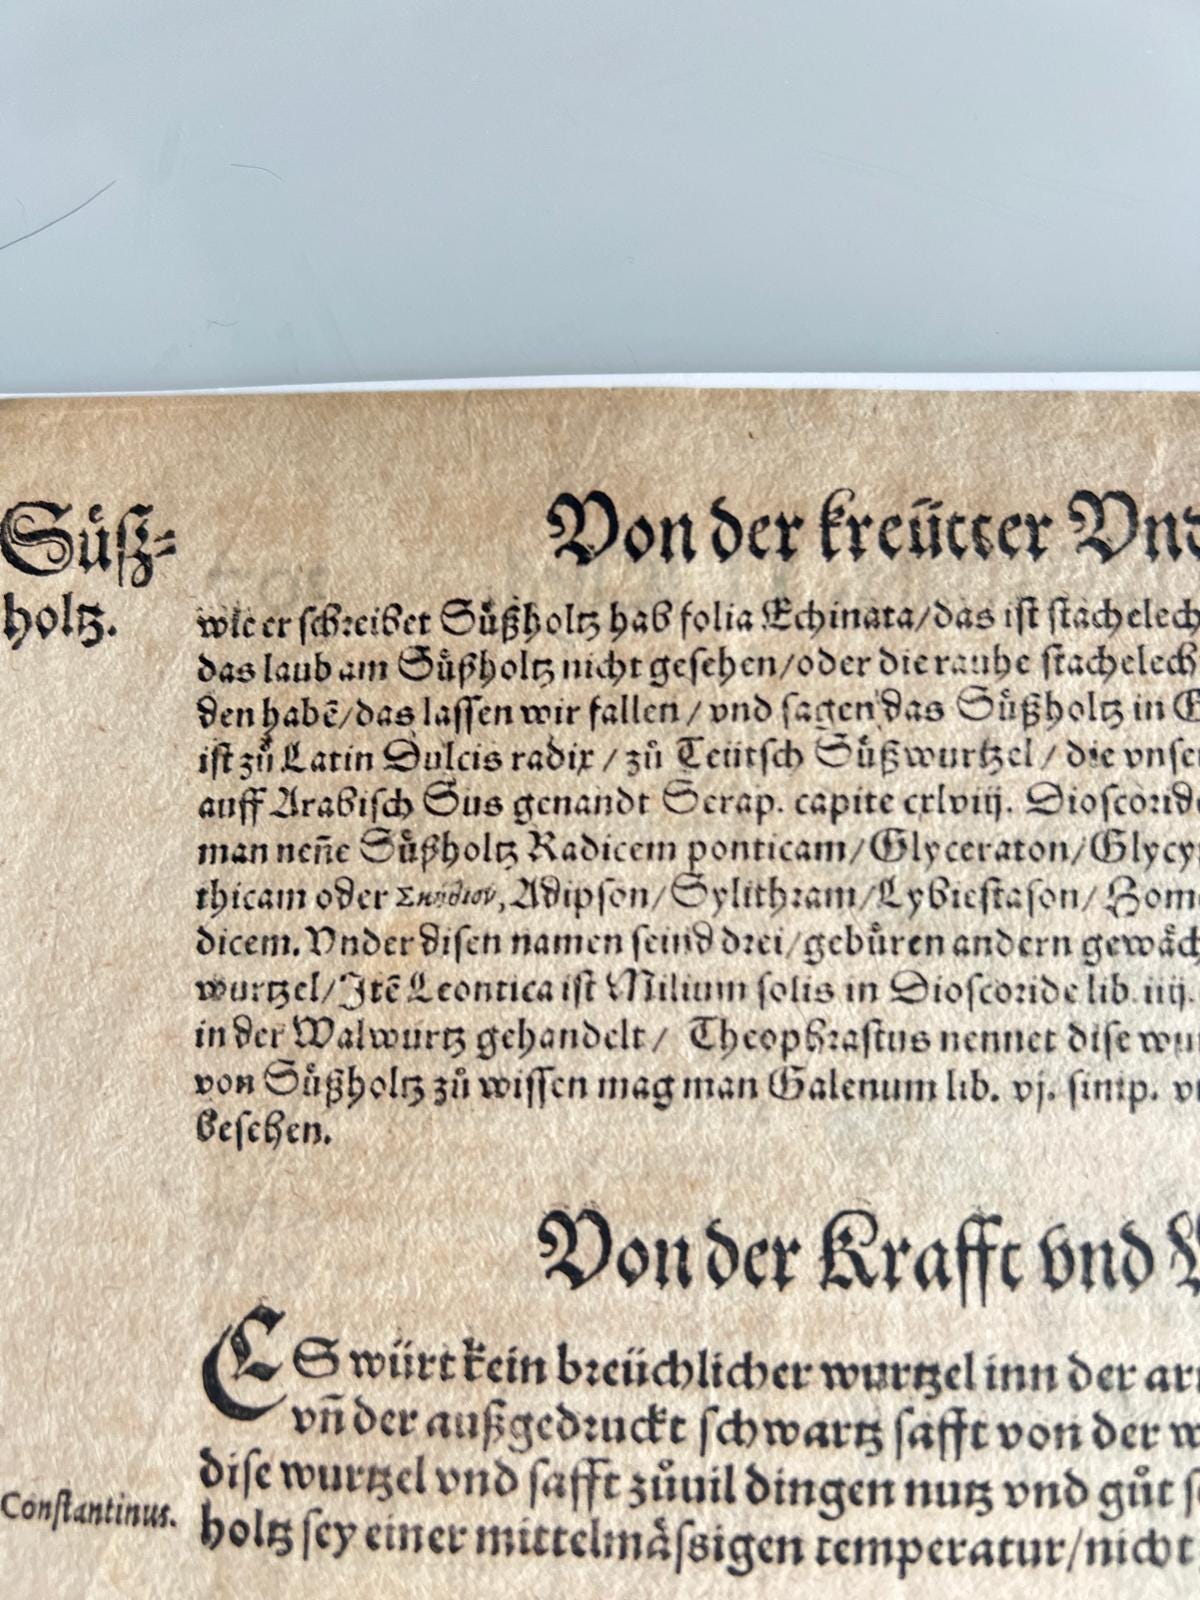 Süſz⸗
holtz.
Von der kreütter Vnd
wie er ſchreibet Suͤßholtz hab folia Echinata/das iſt ſtachelech
das laub am Suͤßholtz nicht geſehen/oder die rauhe ſtachelech
den habē/das laſſen wir fallen/vnd ſagen das Suͤßholtz in
iſt zuͦ Latin Dulcis radix/zuͦ Teütſch Suͤßwurtzel/die vnſe
auff Arabiſch Sus genandt Serap. capite cxlviij. Dioſcoride
man neñe Suͤßholtz Radicem ponticam/Glyceraton/Glycy
thicam oder Σκύθιον, Adipſon/Sylithram/Lybieſtaſon/Hom
dicem. Vnder diſen namen ſeind drei/gebuͤren andern gewaͤch
wurtzel/Itē Leontica iſt Milium ſolis in Dioſcoride lib. iiij.
in der Walwurtz gehandelt/ Theophraſtus nennet diſe wu
von Suͤßholtz zuͦ wiſſen mag man Galenum lib. vj. ſimp.
beſehen.
Von der Krafft vnd
ES würt kein breüchlicher wurtzel inn der
vñ der außgedruckt ſchwartz ſafft von der
diſe wurtzel vnd ſafft zuͦuil dingen nutz vnd guͦt
Conſtantinus.
holtz ſey einer mittelmaͤſsigen temperatur/nicht